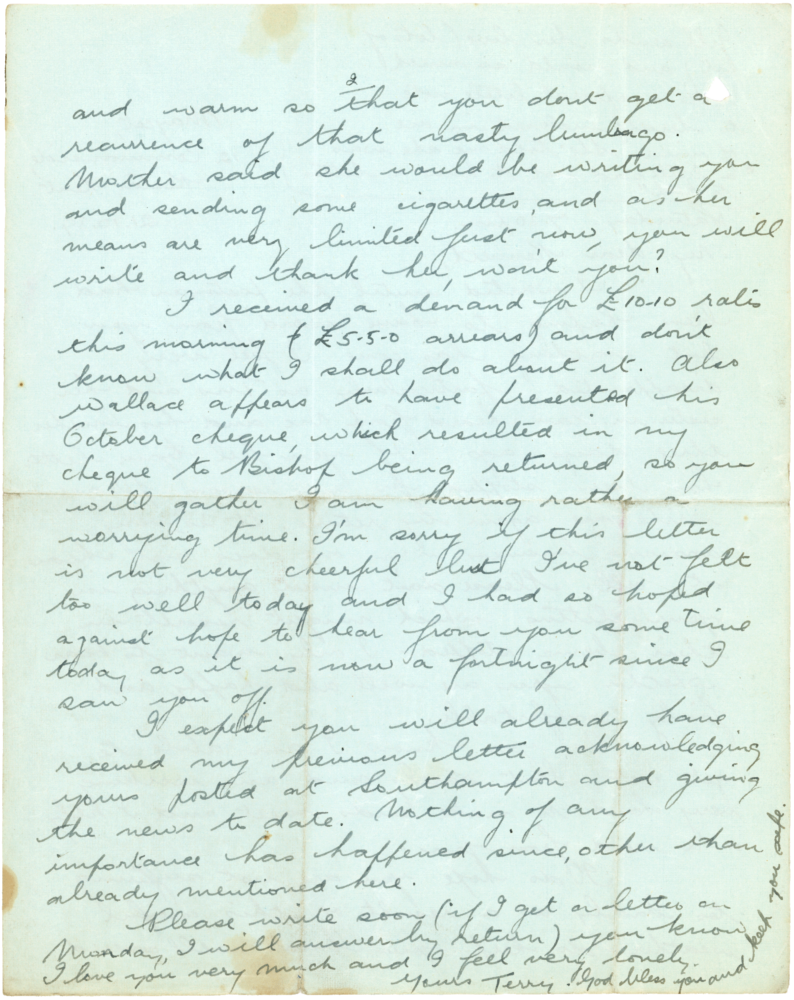 2
and warm so that you dont get a
recurrence of that nasty lumbago.
Mother said she would be writing you
and sending some cigarettes, and as her
means are very limited just now, you will
write and thank her, won't you?
I received a demand for £10-10 rates
this morning (£5-5-0 arrears) and don't
know what I shall do about it. Also
Wallace appears to have presented his
October cheque, which resulted in my
cheque to Bishop being returned, so you
will gather I am having rather a
worrying time. I'm sorry if this letter
is not very cheerful but I've not felt
too well today and I had so hoped
against hope to hear from you some time
today as it is now a fortnight since I
saw you off.
I expect you will already have
received my previous letter acknowledging
yours posted at Southampton and giving
the news to date. Nothing of any
importance has happened since, other than
already mentioned here.
Please write soon (if I get a letter on
Monday, I will answer by return) you know
I love you very much and I feel very lonely.
Yours Terry. God bless you and keep you safe.